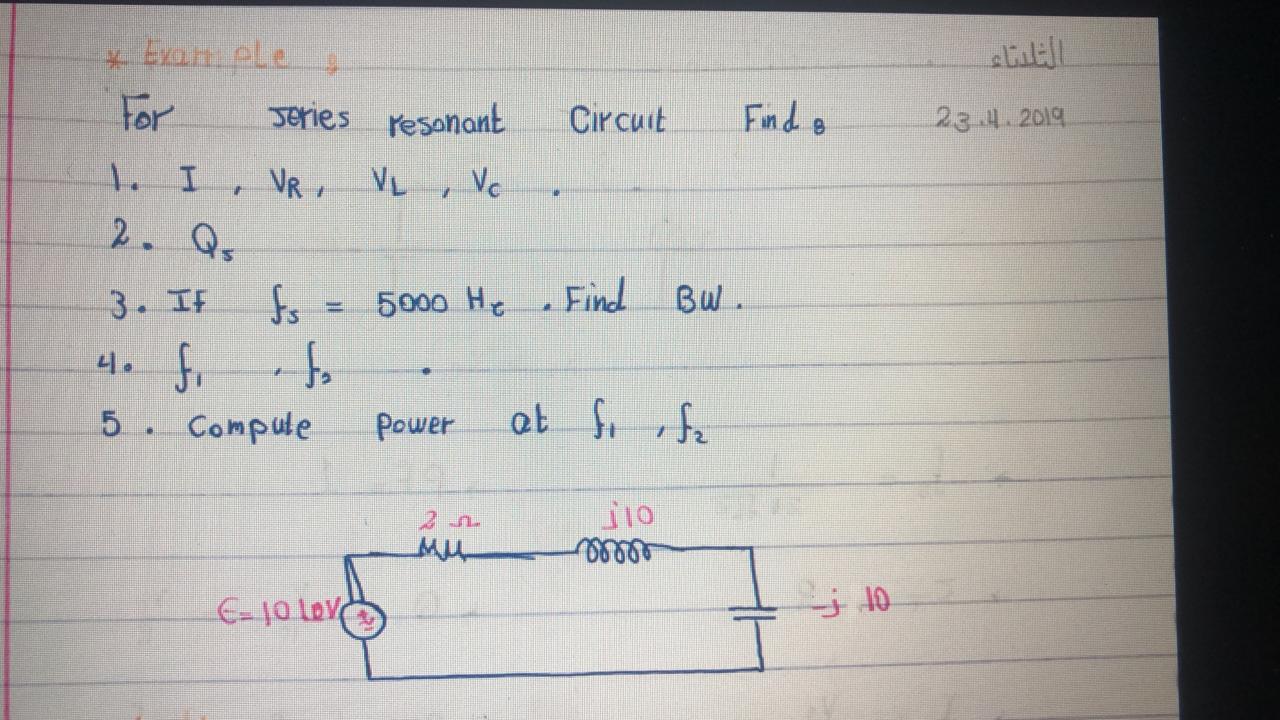 * Example :
الثلثاء
For series resonant Circuit Find :
23.4.2019
1. I , VR , VL , Vc .
2. Qs
3. If fs = 5000 Hz . Find BW .
4. f1 , f2 .
5. Compute Power at f1 , f2
2 Ω j10
E=10 L0V
-j 10